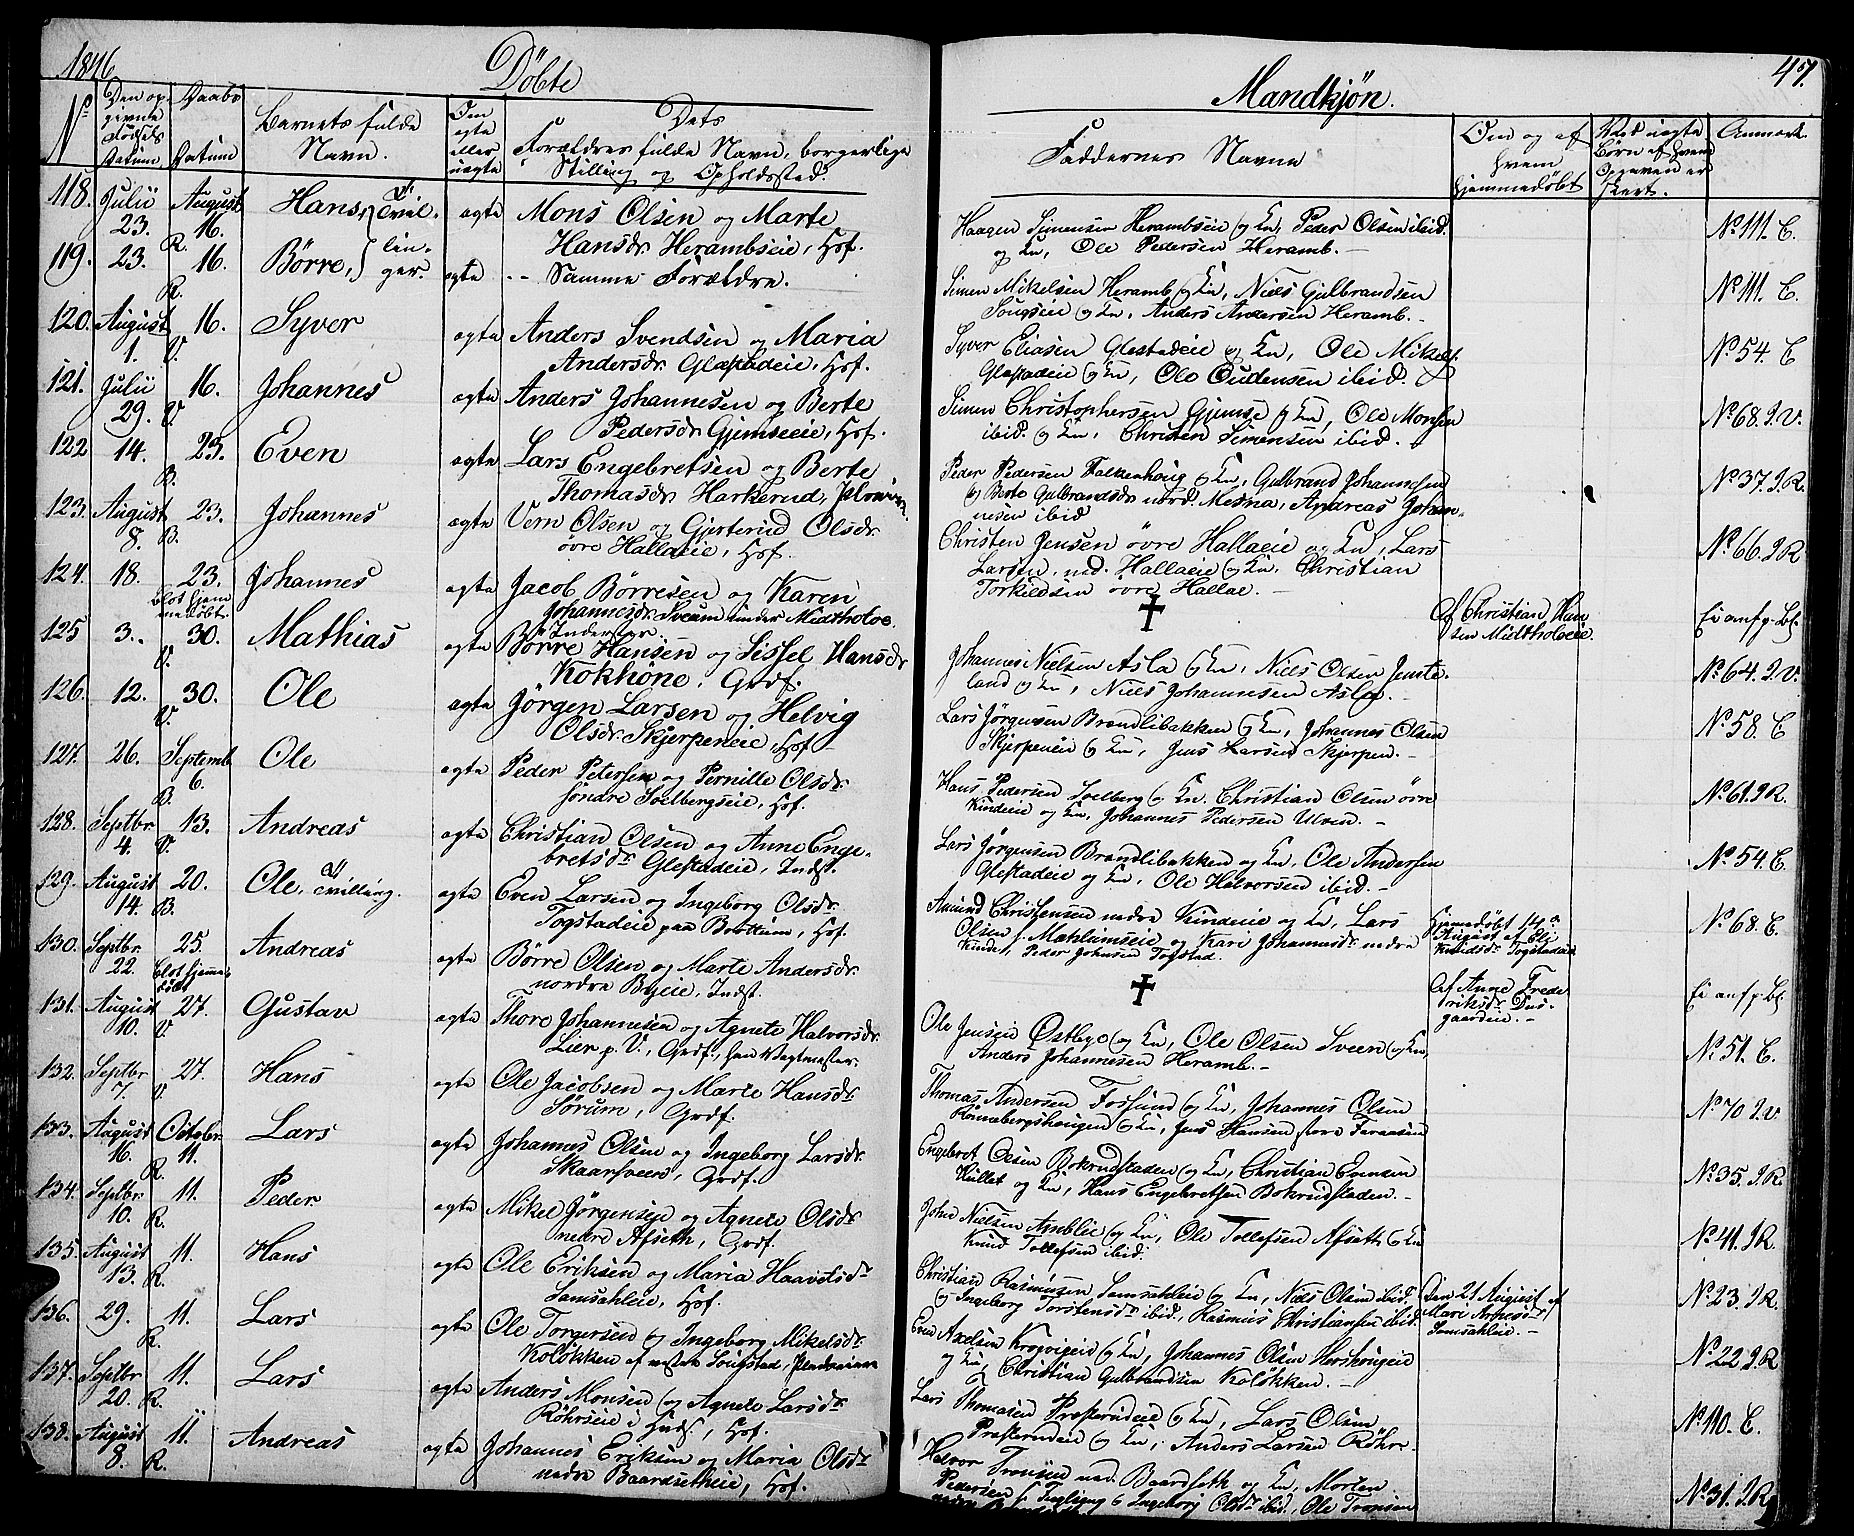 1846
Döbte
Mandkjön.
47.
No
Den opgivne Födsels Datum.
Daabs Datum
Barnets fulde Navn.
Om ægte eller uægte
Dets Forældres fulde Navn, borgerlige Stilling og Opholdssted.
Faddernes Navne
Om og af hvem hjemmedöbt
Anmærk.
118. Julii 23. August 16. R. Hans, Tvil- ægte Mons Olsen og Marte
Hansdr Herambseie, Hof.
Haagen Simensen Herambseie og Kn, Peder Olsen ibid.
og Kn, Ole Pedersen Heramb.
No 111. E.
119. 23. 16. R. Börre, lin-ger. ægte -- Samme Forældre.
Simen Mikelsen Heramb og Kn, Niels Gulbrandsen
Sougseie og Kn, Anders Andersen Heramb.
No 111. E.
120. August 1. 16. V. Syver ægte Anders Svendsen og Maria
Andersdr Glæstadeie, Hof.
Syver Eliasen Glestadeie og Kn, Ole Mikelss.
Glestadeie og Kn, Ole Oudensen ibid.
No 54. E
121. Julii 29. 16. V. Johannes ægte Anders Johannesen og Berte
Pedersdr Gjemseeie, Hof.
Simen Christophersen Gjemse og Kn, Ole Monsen
ibid. og Kn, Christen Simensen ibid.
No 68. J.V.
122 14. 23. B. Even ægte Lars Engebretsen og Berte
Thomasdr Harkerud,
Peder Pedersen Falkenhoug og Kn, Gulbrand Johannesen
og Berte Gulbrandsdr nord. Mesna, Andreas Johan-
nesen ibid
No 37. J.R.
123. August 8. 23. B. Johannes ægte Vern Olsen og Gjerterud Olsdr
övre Hallaeie, Hof.
Christen Jensen övre Hallaeie og Kn, Lars
Larsen, ned. Hallaeie og Kn, Christian
Torkildsen övre Hallae.
No 66. J.R
124. 18. 23. Blot hjem-medöbt Johannes ægte Jacob Börresen og Karen
Johannesdr Sveum under Midtholoe.
Inderster
Af Christian Han-
sen Midtholoeie.
Ei anf. p. Bl.
125 3. 30. V. Mathias ægte Börre Hansen og Sissel Hansdr
Kokhöne, Grdf.
Johannes Nielsen Asla og Kn, Niels Olsen Jemte-
land og Kn, Niels Johannesen Asla.
No 64. J.V.
126. 12. 30. V. Ole ægte Jörgen Larsen og Helvig
Olsdr Skjerpeneie, Hof
Lars Jörgensen Brændlibakken og Kn, Johannes Olsen
Skjerpeneie og Kn, Jens Larsen Skjerpen.
No 58. E
127. 26. Septemb 6. B. Ole ægte Peder Petersen og Pernille Olsdr
söndre Soelbergseie, Hof.
Hans Pedersen Soelberg og Kn. Christian Olsen övre
Kindeie og Kn, Johannes Pedersen Ulven.
No 61. J.R.
128. Septbr 4. 13. V. Andreas ægte Christian Olsen og Anne Enge-
bretsdr Glestadeie, Indst.
Lars Jörgensen Brændlibakken og Kn, Ole Andersen
Glestadeie og Kn, Ole Halvorsen ibid.
No 54. E.
129. August 14. 20. B. Ole, Tvilling. ægte Even Larsen og Ingeborg Olsdr
Togstadeie paa Brottum, Hof.
Amund Christensen nedre Kindeie og Kn, Lars
Olsen Mæhlumseie og Kari Johannesdr nedre
Kinde, Peder Johnsen Togstad.
Hjemmedöbt 14de
August af Eli
Knudsdr Togstadeie
No 68. E.
130. Septbr 22. 25. Blot hjemmedöbt Andreas ægte Börre Olsen og Marte Andersdr
nordre Byeie, Indst.
Af Anne Frede-
riksdr Dus-
gaardeie.
Ei anf. p. Bl.
131. August 10. 27. V. Gustav ægte Thore Johannesen og Agnete Halvorsdr
Lier p. V., Grdf., han Vagtmester.
Ole Jensen Østbye og Kn, Ole Olsen Sveen og Kn,
Anders Johannesen Heramb.
No 51. E.
132. Septbr 7. 27. V. Hans ægte Ole Jacobsen og Marte Hansdr
Sörum, Grdf.
Thomas Andersen Fossund og Kn, Johannes Olsen
Rönnebergshougen og Kn, Jens Hansen store Faraasen
No 70. J.V
133. August 16. Octobr 11. R. Lars ægte Johannes Olsen og Ingeborg Larsdr
Skaarsveen, Grdf.
Engebret Olsen Bokrudstaden og Kn, Christian Evensen
Kullet og Kn, Hans Engebretsen Bokrudstaden.
No 35. J.R
134. Septbr 10. 11. R. Peder ægte Mikel Jörgensen og Agnete Olsdr
nedre Afseth, Grdf.
John Nielsen Amblie og Kn, Ole Tollefsen Afsett og Kn
Knud Tollefsen ibid.
No 41. J.R
135. August 13. 11. R. Hans ægte Ole Eriksen og Maria Haavelsdr
Samsahleie, Hof.
Christian Rasmusen Samsahleie og Kn, Niels Olsen ibid.
og Ingeborg Torstensdr ibid., Rasmus Christiansen ibid.
Den 21 August af
Mari Arnesdr
Samsahleie.
No 23. J.R.
136. 29. 11. R. Lars ægte Ole Torgersen og Ingeborg Mikelsdr
Kolökken af nestre Sougstad,
Even Axelsen Krogvigeie og Kn, Johannes Olsen Hershougeie
og Kn, Christian Gulbrandsen Kolökken.
No 22. J.R
137. Septbr 20. 11. R. Lars ægte Anders Monsen og Agnete Larsdr
Röhrseie i Huds, Hof.
Lars Thomasen Præsterudeie og Kn, Lars Olsen
Præsterudeie og Kn, Anders Larsen Röhre.
No 110. E.
138. August 8. 11. R. Andreas ægte Johannes Eriksen og Maria Olsdr
nedre Baardsetheie, Hof.
Halvor Tronsen ned. Baardseth og Kn, Morten
Pedersen og Ingeborg Olsdr ibid., Ole Tronsen
No 31. J.R